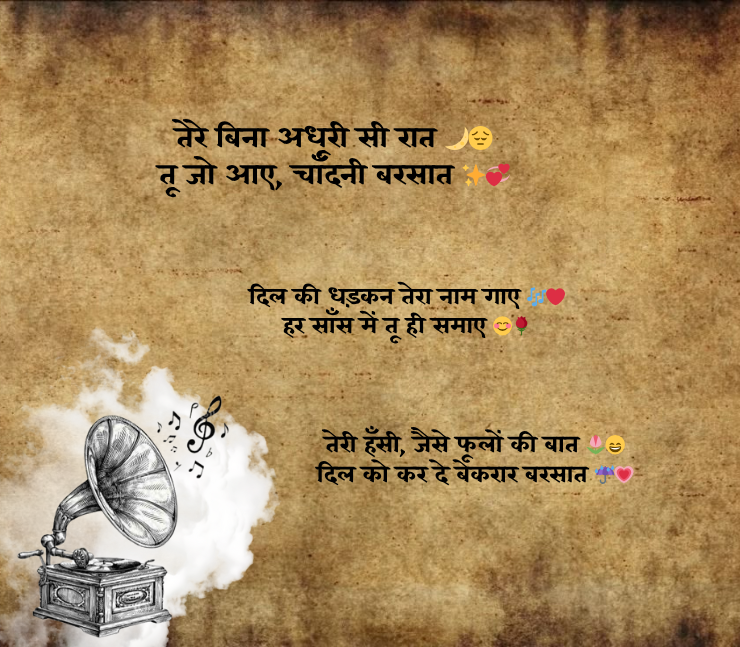 तेरे बिना अधूरी सी रात 🌙😔
तू जो आए, चाँदनी बरसात ✨💞
दिल की धड़कन तेरा नाम गाए 🎶❤️
हर साँस में तू ही समाए 😊🌹
तेरी हँसी, जैसे फूलों की बात 🌷😄
दिल को कर दे बेकरार बरसात ☔💗